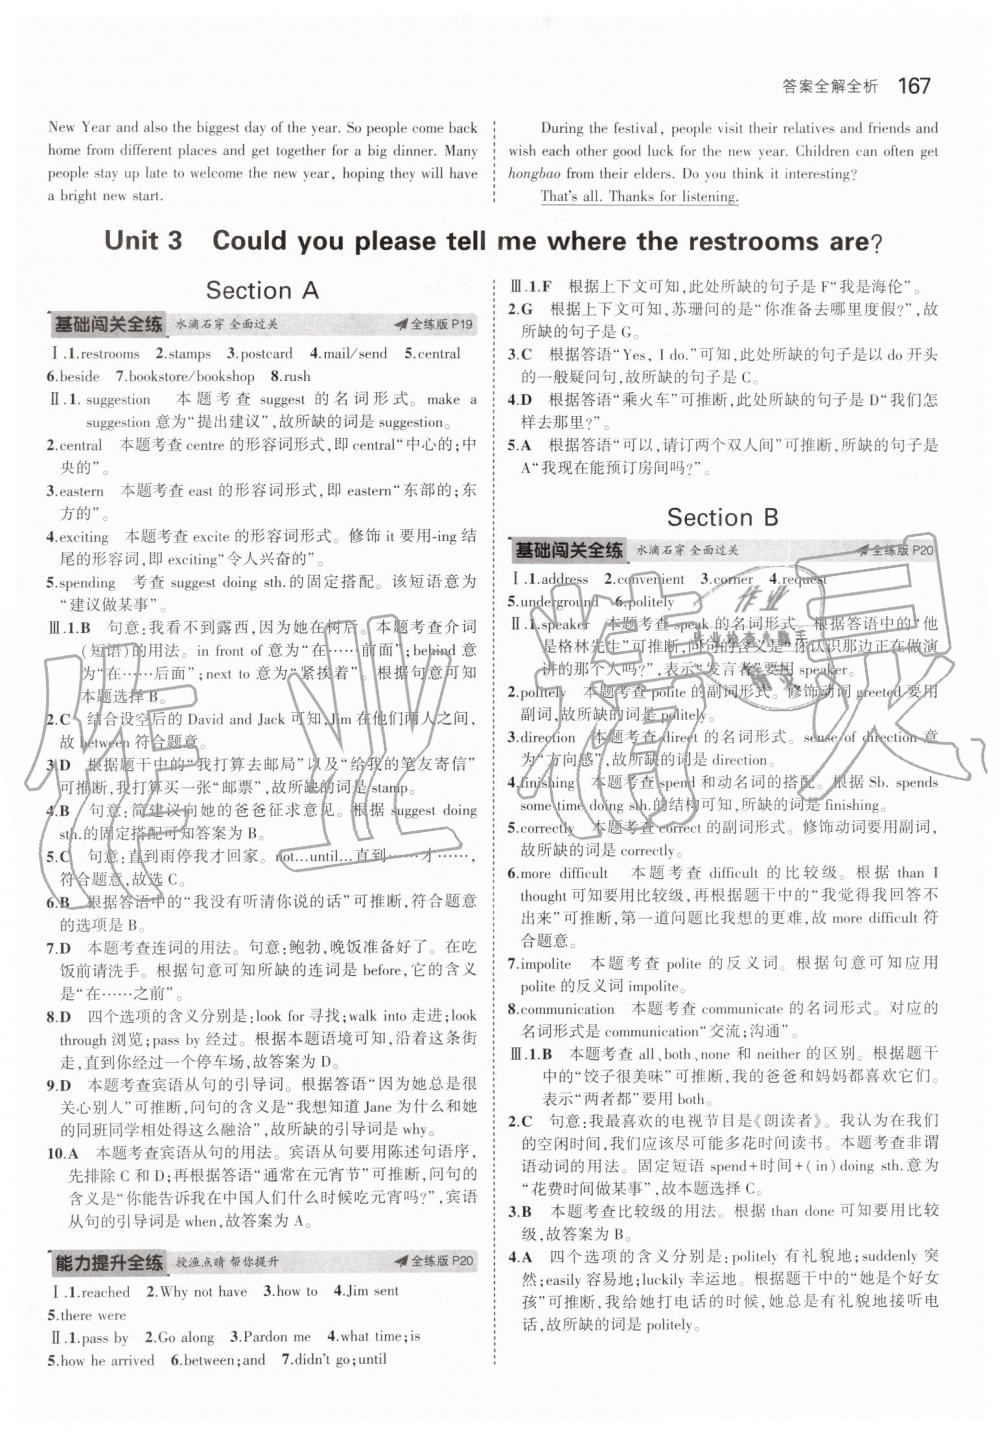 答案全解全析 167
New Year and also the biggest day of the year. So people come back
home from different places and get together for a big dinner. Many
people stay up late to welcome the new year, hoping they will have
a bright new start.
During the festival, people visit their relatives and friends and
wish each other good luck for the new year. Children can often get
hongbao from their elders. Do you think it interesting?
That's all. Thanks for listening.
Unit 3 Could you please tell me where the restrooms are?
Section A
基础闯关全练 水滴石穿 全面过关 全练版 P19
Ⅰ.1.restrooms 2.stamps 3.postcard 4.mail/send 5.central
6.beside 7.bookstore/bookshop 8.rush
Ⅱ.1. suggestion 本题考查 suggest 的名词形式。make a
suggestion 意为“提出建议”,故所缺的词是 suggestion。
2.central 本题考查 centre 的形容词形式,即 central“中心的;中
央的”。
3.eastern 本题考查 east 的形容词形式,即 eastern“东部的;东
方的”。
4.exciting 本题考查 excite 的形容词形式。修饰 it 要用-ing 结
尾的形容词,即 exciting“令人兴奋的”。
5.spending 考查 suggest doing sth.的固定搭配。该短语意为
“建议做某事”。
Ⅲ.1.B 句意:我看不到露西,因为她在树后。本题考查介词
(短语)的用法。in front of 意为“在……前面”;behind 意
为“在……后面”;next to 意为“紧挨着”。根据句意可知
本题选择 B。
2.C 结合设空后的 David and Jack 可知,Jim 在他们两人之间,
故 between 符合题意。
3.D 根据题干中的“我打算去邮局”以及“给我的笔友寄信”
可推断,我打算买一张“邮票”,故所缺的词是 stamp。
4.B 句意:简建议向她的爸爸征求意见。根据 suggest doing
sth.的固定搭配可知答案为 B。
5.C 句意:直到雨停我才回家。not…until…直到……才……,
符合题意,故选 C。
6.B 根据答语中的“我没有听清你说的话”可推断,符合题意
的选项是 B。
7.D 本题考查连词的用法。句意:鲍勃,晚饭准备好了。在吃
饭前请洗手。根据句意可知所缺的连词是 before,它的含义
是“在……之前”。
8.D 四个选项的含义分别是:look for 寻找;walk into 走进;look
through 浏览;pass by 经过。根据本题语境可知,沿着这条街
走,直到你经过一个停车场,故答案为 D。
9.D 本题考查宾语从句的引导词。根据答语“因为她总是很
关心别人”可推断,问句的含义是“我想知道 Jane 为什么和她
的同班同学相处得这么融洽”,故所缺的引导词是 why。
10.A 本题考查宾语从句的用法。宾语从句要用陈述句语序,
先排除 C 和 D;再根据答语“通常在元宵节”可推断,问句的
含义是“你能告诉我在中国人们什么时候吃元宵吗?”,宾语
从句的引导词是 when,故答案为 A。
能力提升全练 授渔点睛 帮你提升 全练版 P20
Ⅰ.1.reached 2.Why not have 3.how to 4.Jim sent
5.there were
Ⅱ.1.pass by 2.Go along 3.Pardon me 4.what time;is
5.how he arrived 6.between;and 7.didn't go;until
Ⅲ.1.F 根据上下文可知,此处所缺的句子是 F“我是海伦”。
2.G 根据上下文可知,苏珊问的是“你准备去哪里度假?”,故
所缺的句子是 G。
3.C 根据答语“Yes, I do.”可知,此处所缺的句子是以 do 开头
的一般疑问句,故所缺的句子是 C。
4.D 根据答语“乘火车”可推断,此处所缺的句子是 D“我们怎
样去那里?”。
5.A 根据答语“可以,请订两个双人间”可推断,所缺的句子是
A“我现在能预订房间吗?”。
Section B
基础闯关全练 水滴石穿 全面过关 全练版 P20
Ⅰ.1.address 2.convenient 3.corner 4.request
5.underground 6.politely
Ⅱ.1.speaker 本题考查 speak 的名词形式。根据答语中的“他
是格林先生”可推断,问句的含义是“你认识那边正在做演
讲的那个人吗?”,表示“发言者”要用 speaker。
2.politely 本题考查 polite 的副词形式。修饰动词 greeted 要用
副词,故所缺的词是 politely。
3.direction 本题考查 direct 的名词形式。sense of direction 意
为“方向感”,故所缺的词是 direction。
4.finishing 本题考查 spend 和动名词的搭配。根据 Sb. spends
some time doing sth.的结构可知,所缺的词是 finishing。
5.correctly 本题考查 correct 的副词形式。修饰动词要用副词,
故所缺的词是 correctly。
6.more difficult 本题考查 difficult 的比较级。根据 than I
thought 可知要用比较级,再根据题干中的“我觉得我回答不
出来”可推断,第一道问题比我想的更难,故 more difficult 符
合题意。
7.impolite 本题考查 polite 的反义词。根据句意可知应用
polite 的反义词 impolite。
8.communication 本题考查 communicate 的名词形式。对应的
名词形式是 communication“交流;沟通”。
Ⅲ.1.B 本题考查 all、both、none 和 neither 的区别。根据题干
中的“饺子很美味”可推断,我的爸爸和妈妈都喜欢它们。
表示“两者都”要用 both。
2.C 句意:我最喜欢的电视节目是《朗读者》。我认为在我们
的空闲时间,我们应该尽可能多花时间读书。本题考查非谓
语动词的用法。固定短语 spend+时间+(in)doing sth.意为
“花费时间做某事”,故本题选择 C。
3.B 本题考查比较级的用法。根据 than done 可知要用比较
级,故答案为 B。
4.A 四个选项的含义分别是:politely 有礼貌地;suddenly 突
然;easily 容易地;luckily 幸运地。根据题干中的“她是个好女
孩”可推断,我给她打电话的时候,她总是有礼貌地接听电
话,故所缺的词是 politely。
作业精灵
作业
作业检查小助手
精灵